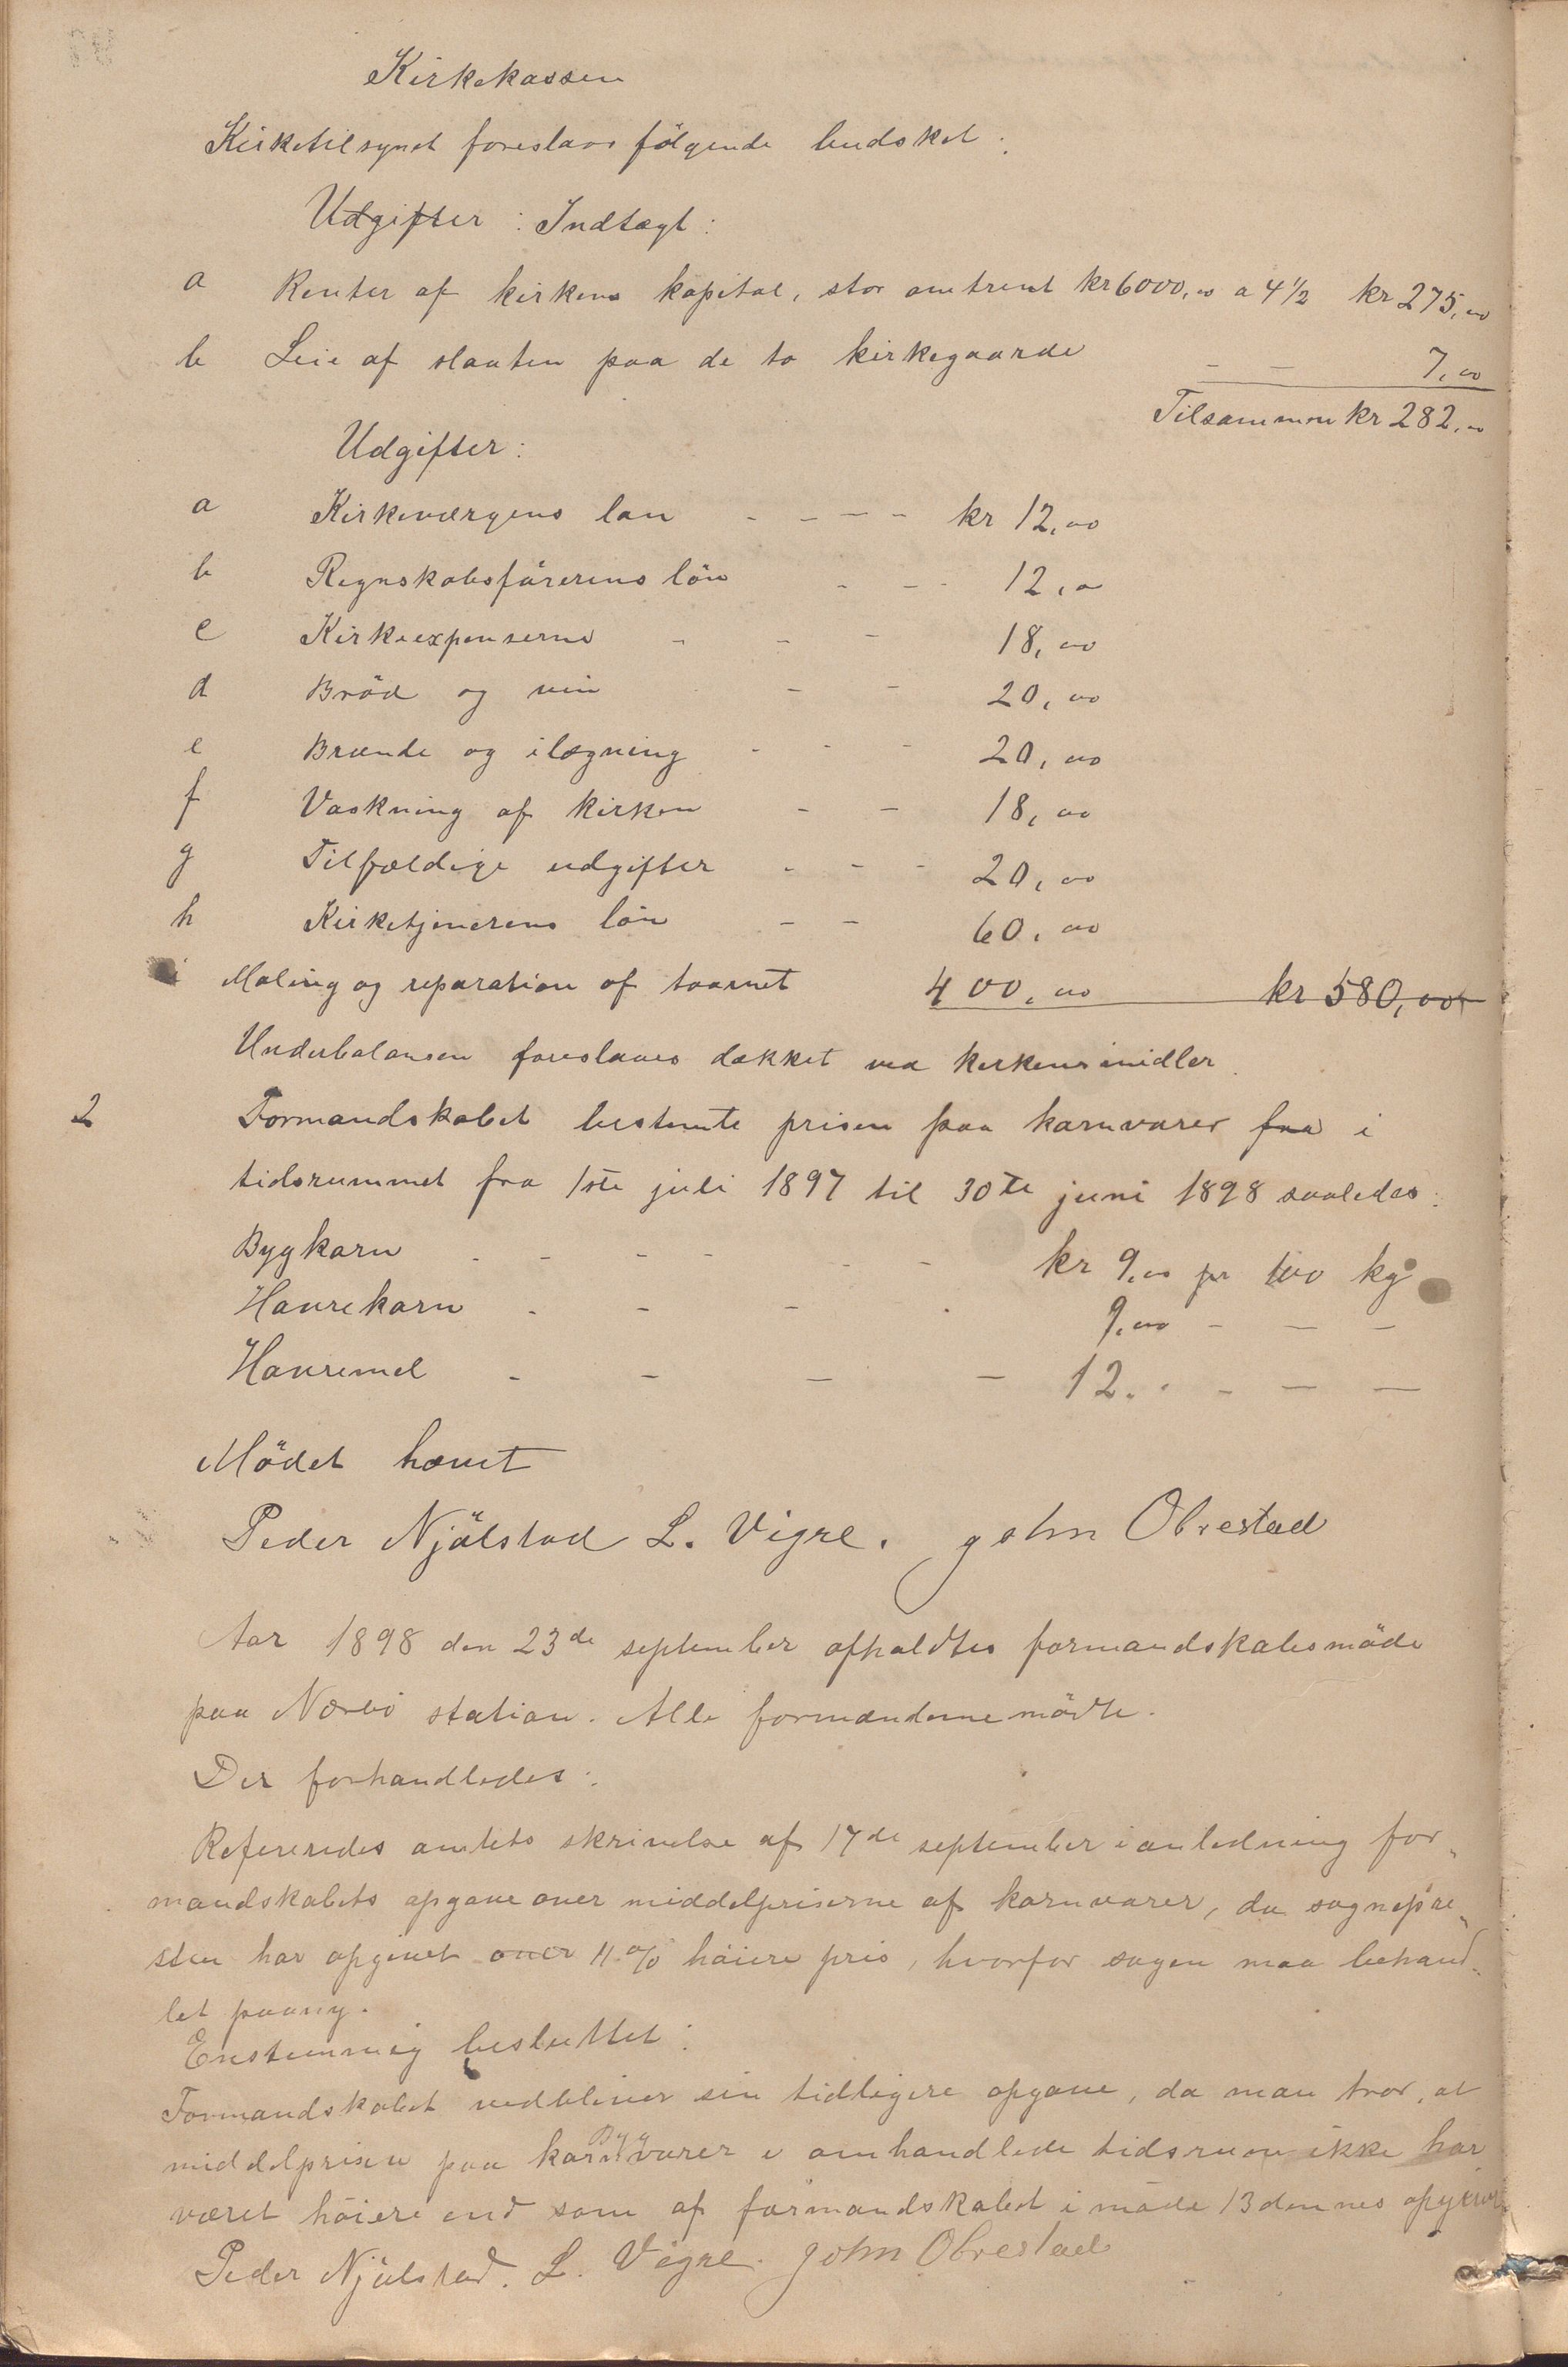 Kirkekassen
Kirketilsynet foreslaar följende budsket:
Udgifter: Indtægt:
a Renter af kirkens kapital, stor omtrent kr 6000,00 a 4 1/2 kr 275,00
b Leie af slaaten paa de to kirkegaarde - - 7,00
Tilsammen kr 282,00
Udgifter:
a Kirkeværgens lön - - - - kr 12,00
b Regnskabsförerens lön - - - 12,00
c Kirkeexpenserne - - - 18,00
d Bröd og vin - - 20,00
e Brænde og ilægning - - - 20,00
f Vaskning af kirken - - 18,00
g Tilfældige udgifter - - - 20,00
h Kirketjenerens lön - - 60,00
i Maling og reparation af taarnet 400,00 kr 580,00
Underbalansen foreslaaes dækket ved kirkens midler.
2 Formandskabet bestemte prisen paa kornvarer fra i
tidsrummet fra 1ste juli 1897 til 30te juni 1898 saaledes:
Bygkorn - - - - - - kr 9,00 pr 100 kg
Havrekorn - - - - 9,00 - - -
Havremel - - - - 12. . - - -
Mödet hævet
Peder Njålstad L. Vigre. John Obrestad
Aar 1898 den 23de september afholdtes formandskabsmöde
paa Nærbö station. Alle formændene mödte.
Der forhandledes:
Refereredes amtets skrivelse af 17de september i anledning for-
mandskabets opgave over middelpriserne af kornvarer, da sognepre-
sten har opgivet over 11 % höiere pris, hvorfor sagen maa behand-
let paany.
Enstemmig besluttet:
Formandskabet vedbliver sin tidligere opgave, da man tror, at
Byg
middelprisen paa kornvarer i omhandlede tidsrum ikke har
været höiere end som af formandskabet i möde 13 dennes opgivet
Peder Njålstad. L. Vigre. John Obrestad